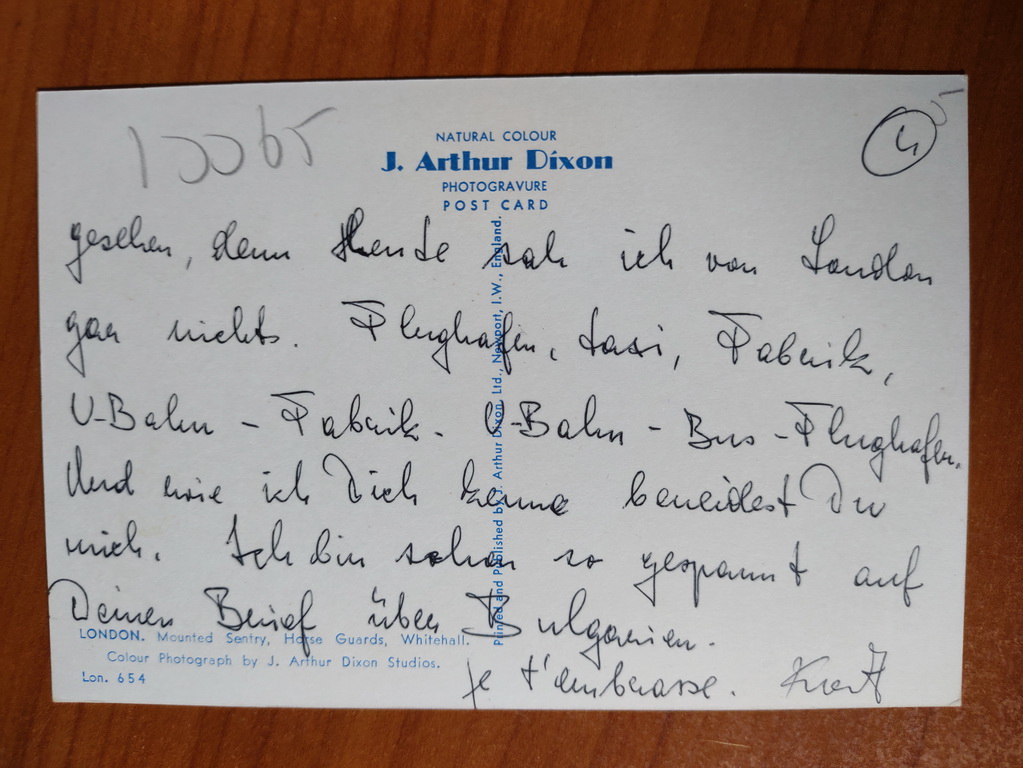 NATURAL COLOUR
J. Arthur Dixon
PHOTOGRAVURE
POST CARD
4
gesehen, denn Heute sah ich von London
gar nichts. Flughafen, taxi, Fabrik,
U-Bahn - Fabrik - U-Bahn - Bus - Flughafen.
Und wie ich Dich kenne beneidest Du
mich. Ich bin schon so gespannt auf
Deinen Brief über Bulgarien.
je t'embrasse. Kurt
Printed and Published by J. Arthur Dixon, Ltd., Newport, I.W., England.
LONDON. Mounted Sentry, Horse Guards, Whitehall.
Colour Photograph by J. Arthur Dixon Studios.
Lon. 654